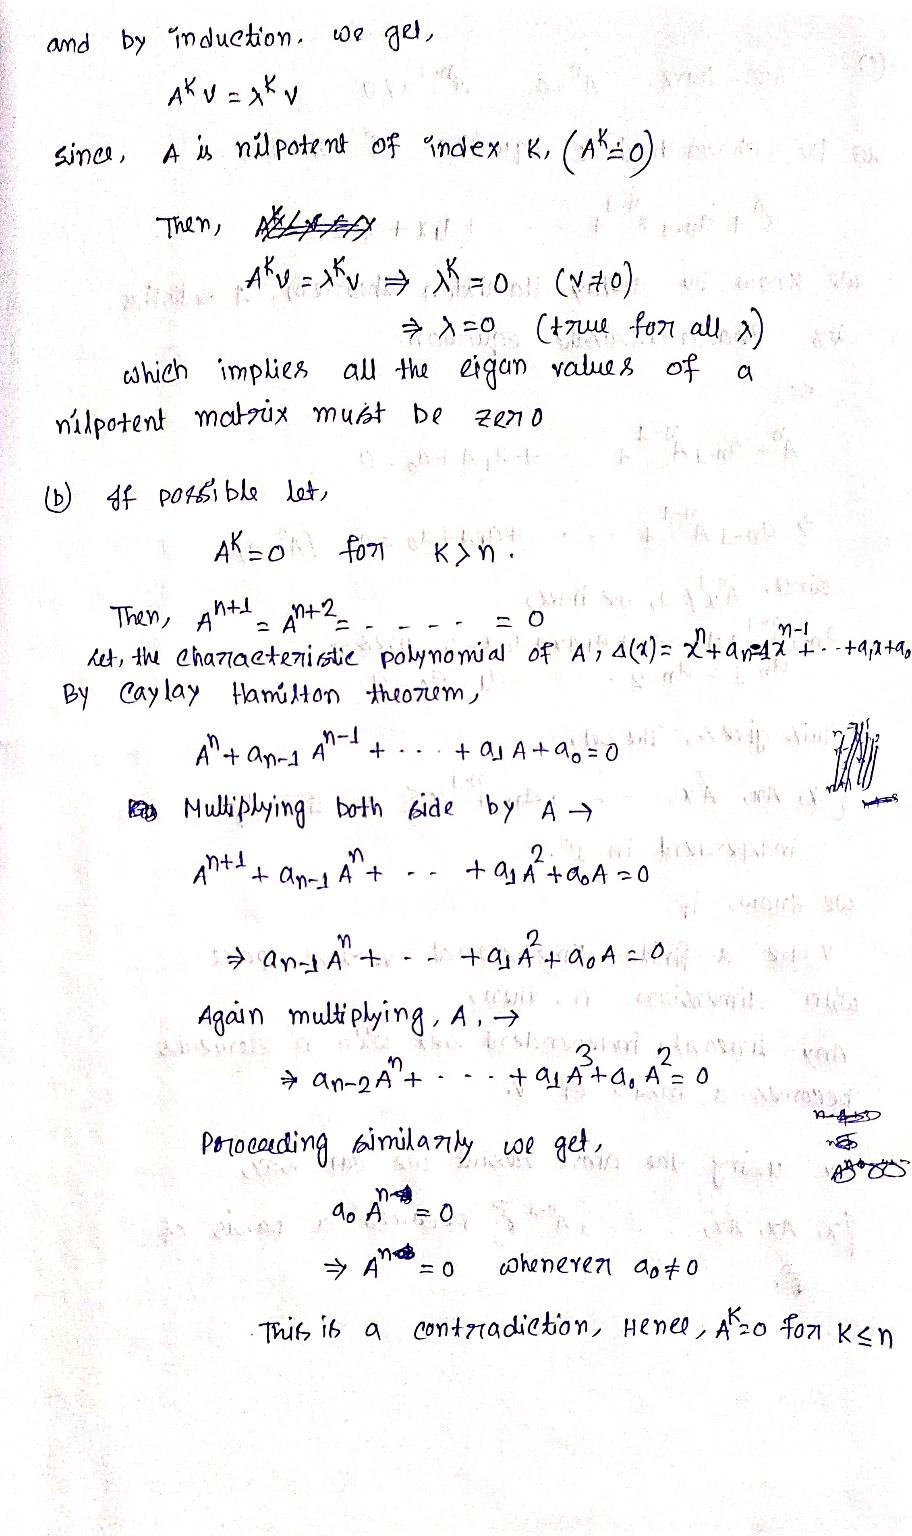 and by induction. we get,
A^K v = λ^K v
since, A is nilpotent of index K, (A^K = 0)
Then,
A^K v = λ^K v ⇒ λ^K = 0 (v ≠ 0)
⇒ λ = 0 (true for all λ)
which implies all the eigan values of a
nilpotent matrix must be zero
(b) If possible let,
A^K = 0 for K > n.
Then, A^{n+1} = A^{n+2} = - - - - = 0
Let, the characteristic polynomial of A; Δ(x) = x^n + a_{n-1} x^{n-1} + .. + a_1 x + a_0
By Caylay Hamilton theorem,
A^n + a_{n-1} A^{n-1} + ... + a_1 A + a_0 = 0
Multiplying both side by A →
A^{n+1} + a_{n-1} A^n + -- + a_1 A^2 + a_0 A = 0
⇒ a_{n-1} A^n + - - + a_1 A^2 + a_0 A = 0
Again multiplying, A, →
⇒ a_{n-2} A^n + - - - + a_1 A^3 + a_0 A^2 = 0
Proceeding similarly we get,
a_0 A^n = 0
⇒ A^n = 0 whenever a_0 ≠ 0
This is a contradiction, Hence, A^K = 0 for K ≤ n